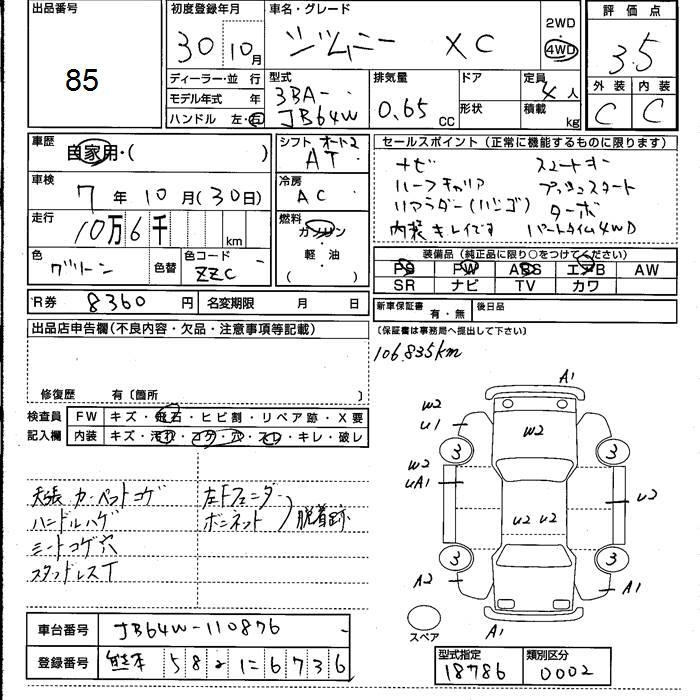 出品番号
85
初度登録年月
30年10月
車名・グレード
ジムニー XC
2WD
4WD
評価点
3.5
外装 内装
C C
ディーラー・並行
モデル年式 年
ハンドル 左・右
型式
3BA-
JB64W
排気量
0.65 CC
ドア
形状
定員
4人
積載
kg
車歴
自家用・( )
車検
7年10月(30日)
走行
10万6千 km
色
グリーン
色替
色コード
ZZC
シフト オート2
AT
冷房
AC
燃料
ガソリン
・
軽油
・
( )
セールスポイント(正常に機能するものに限ります)
ナビ スマートキー
ハーフキャリア プッシュスタート
リアラダー(ハシゴ) ターボ
内装キレイです パートタイム4WD
装備品(純正品に限り○をつけてください)
PS PW ABS エアB AW
SR ナビ TV カワ
R券 8360円
名変期限 月 日
新車保証書 有・無
後日品
(保証書は事務局へ提出して下さい)
出品店申告欄(不良内容・欠品・注意事項等記載)
106.835km
修復歴 有〔箇所 〕
検査員
記入欄
FW キズ・飛石・ヒビ割・リペア跡・X要
内装 キズ・汚れ・コゲ・穴・スレ・キレ・破レ
天張 カーペットコゲ
ハンドルハゲ
シートコゲ穴
スタッドレスT
左Fフェンダー
ボンネット
脱着跡
A1
W2
U1
W2
3
3
W2
UA1
U2
U2 U2
3
3
A2
A1
A1
スペア
車台番号 JB64W-110876
登録番号 熊本 582 に 6736
型式指定
18786
類別区分
0002